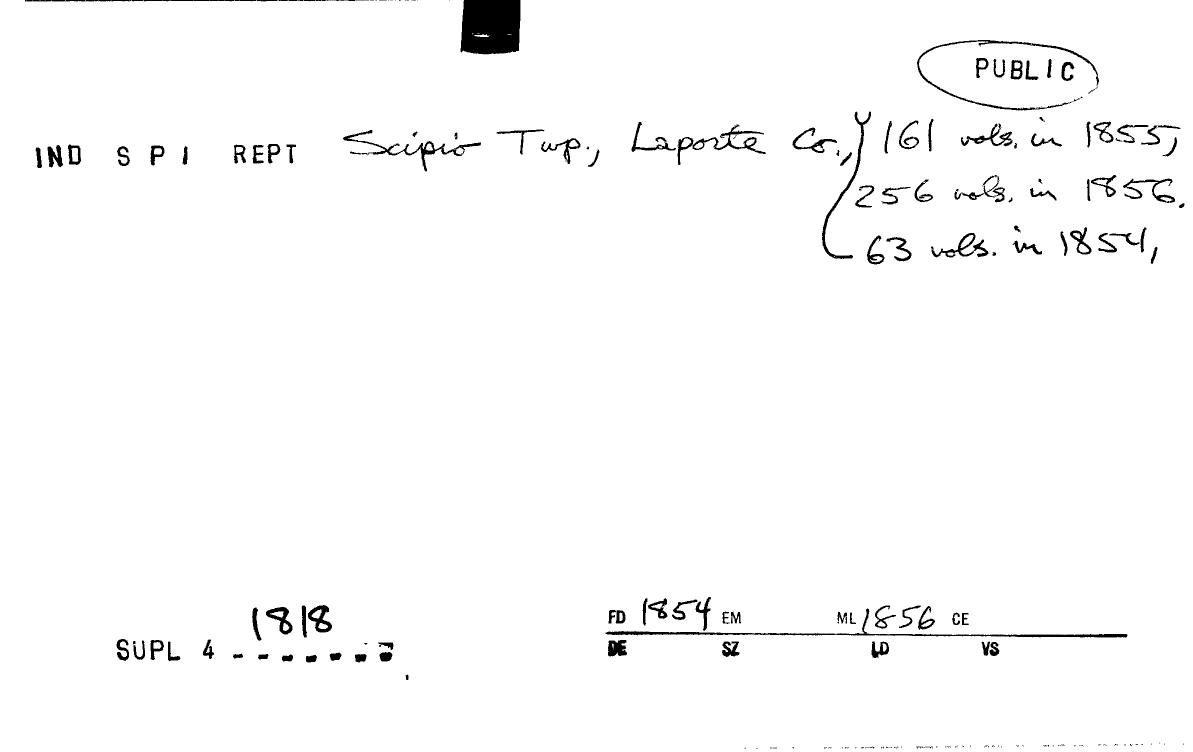 PUBLIC
IND S P I REPT Scipio Twp., Laporte Co., 161 vols. in 1855,
256 vols. in 1856.
63 vols. in 1854,
1818
SUPL 4
FD 1854 EM ML 1856 CE
DE SZ LD VS